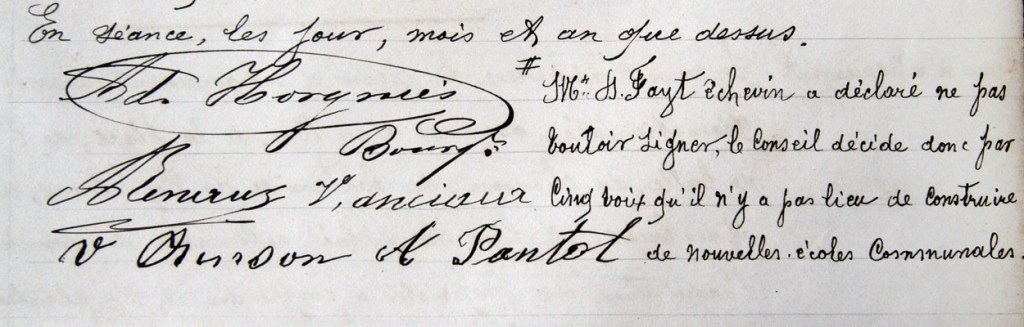 En séance, les jour, mois et an que dessus.
Ad. Horgnies
Bourg.
V. Ancieaux
V Owrson A Pantot
# Mr. D. Fayt Echevin a déclaré ne pas
vouloir signer, le Conseil décide donc par
cinq voix qu'il n'y a pas lieu de construire
de nouvelles écoles Communales.